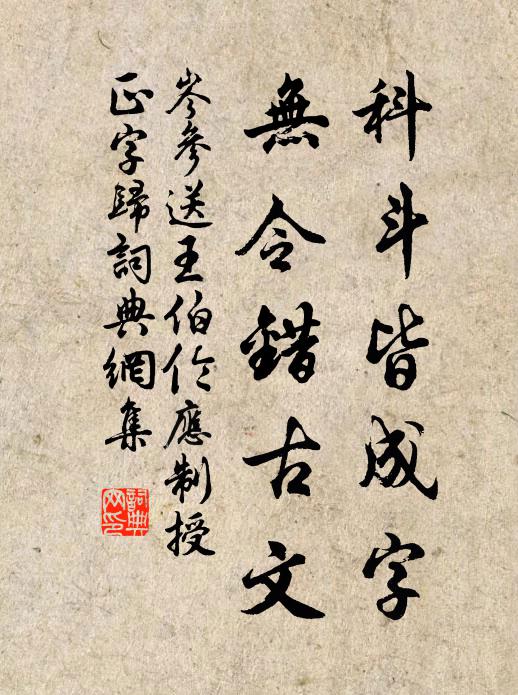 科斗皆成字
無令錯古文
岑參送王伯倫應制授
正字歸詞典網集
詞典
网印